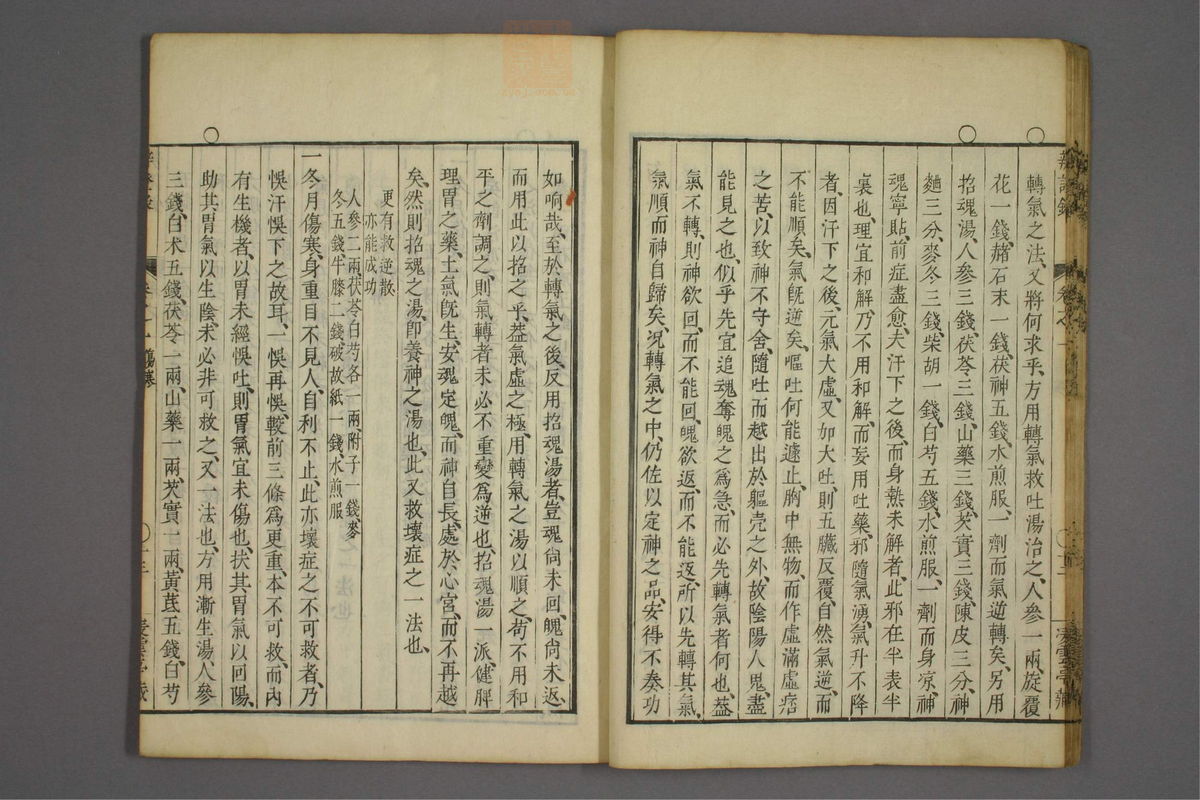 轉氣之法、又將何求乎、方用轉氣救吐湯治之、人參一兩、旋覆
花一錢、赭石末一錢、茯神五錢、水煎服、一劑而氣逆轉矣、另用
招魂湯、人參三錢、茯苓三錢、山藥三錢、芡實三錢、陳皮三分、神
麯三分、麥冬三錢、柴胡一錢、白芍五錢、水煎服、一劑而身凉、神
魂寧貼、前症盡愈、夫汗下之後、而身熱未解者、此邪在半表半
裏也、理宜和解、乃不用和解、而妄用吐藥、邪隨氣湧、氣升不降
者、因汗下之後、元氣大虛、又加大吐、則五臟反覆、自然氣逆、而
不能順矣、氣旣逆矣、嘔吐何能遽止、胸中無物、而作虛滿虛痞
之苦、以致神不守舍、隨吐而越出於軀壳之外、故陰陽人鬼、盡
能見之也、似乎先宜追魂奪魄之爲急、而必先轉氣者何也、葢
氣不轉、則神欲回、而不能回、魄欲返、而不能返、所以先轉其氣、
氣順而神自歸矣、况轉氣之中、仍佐以定神之品、安得不奏功
如响哉、至於轉氣之後、反用招魂湯者、豈魂尙未回、魄尙未返、
而用此以招之乎、葢氣虛之極、用轉氣之湯以順之、苟不用和
平之劑調之、則氣轉者未必不重變爲逆也、招魂湯一派、健脾
理胃之藥、土氣旣生、安魂定魄、而神自長處於心宮、而不再越
矣、然則招魂之湯、卽養神之湯也、此又救壞症之一法也、
更有救逆散
亦能成功
人參二兩茯苓白芍各一兩附子一錢麥
冬五錢牛膝二錢破故紙一錢水煎服
一冬月傷寒、身重目不見人、自利不止、此亦壞症之不可救者、乃
悞汗悞下之故耳、一悞再悞、較前三條爲更重、本不可救、而內
有生機者、以胃未經悞吐、則胃氣宜未傷也、扶其胃氣以回陽、
助其胃氣以生陰、未必非可救之、又一法也、方用漸生湯、人參
三錢、白术五錢、茯苓一兩、山藥一兩、芡實一兩、黃芪五錢、白芍